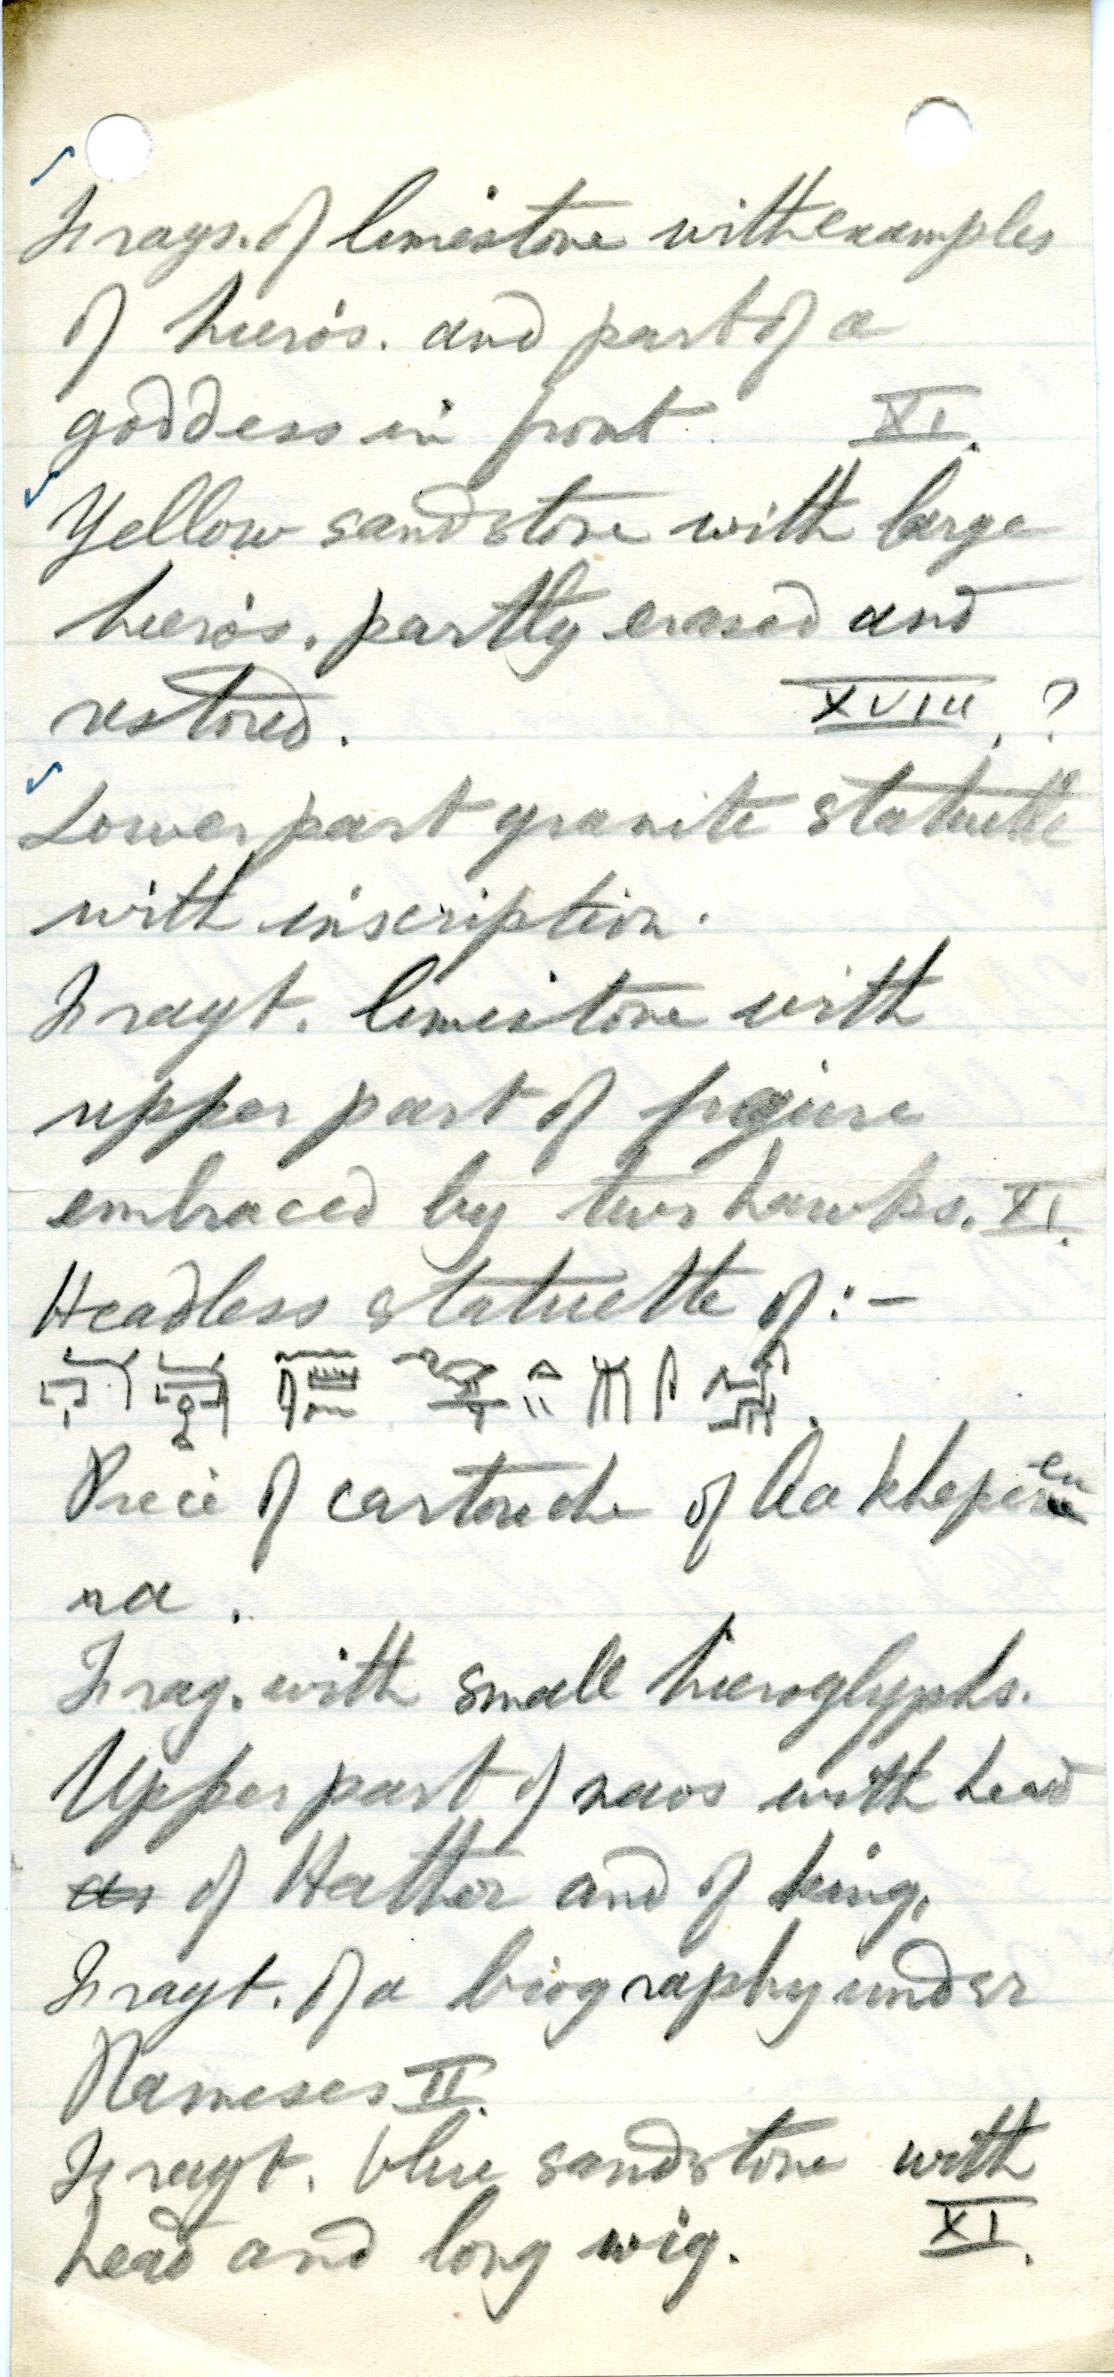 Frags. of limestone with examples
of hiero's. and part of a
goddess in front XI.
Yellow sandstone with large
hiero's. partly erased and
restored. XVIII. ?
Lower part granite statuette
with inscription.
Fragt. limestone with
upper part of figure
embraced by two hawks. XI.
Headless statuette of :-
Piece of cartouche of Aa kheper en
ra .
Frag. with small hieroglyphs.
Upper part of naos with head
of Hathor and of king.
Fragt. of a biography under
Rameses II.
Fragt. blue sandstone with
head and long wig. XI.